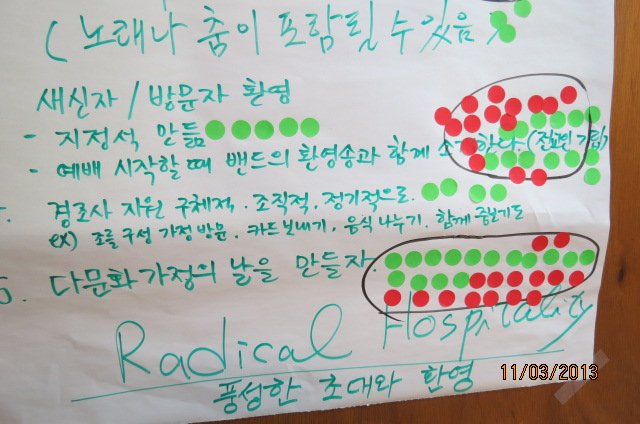 (노래나 춤이 포함될 수 있음)
새신자/방문자 환영
- 지정석 만듦
- 예배 시작할 때 밴드의 환영송과 함께 소개한다. (전교인 기립)
경조사 지원 구체적. 조직적. 정기적으로.
ex) 조를 구성 가정방문. 카드보내기. 음식 나누기. 함께
5. 다문화가정의 날을 만들자.
Radical Hospitality
풍성한 초대와 환영
11/03/2013